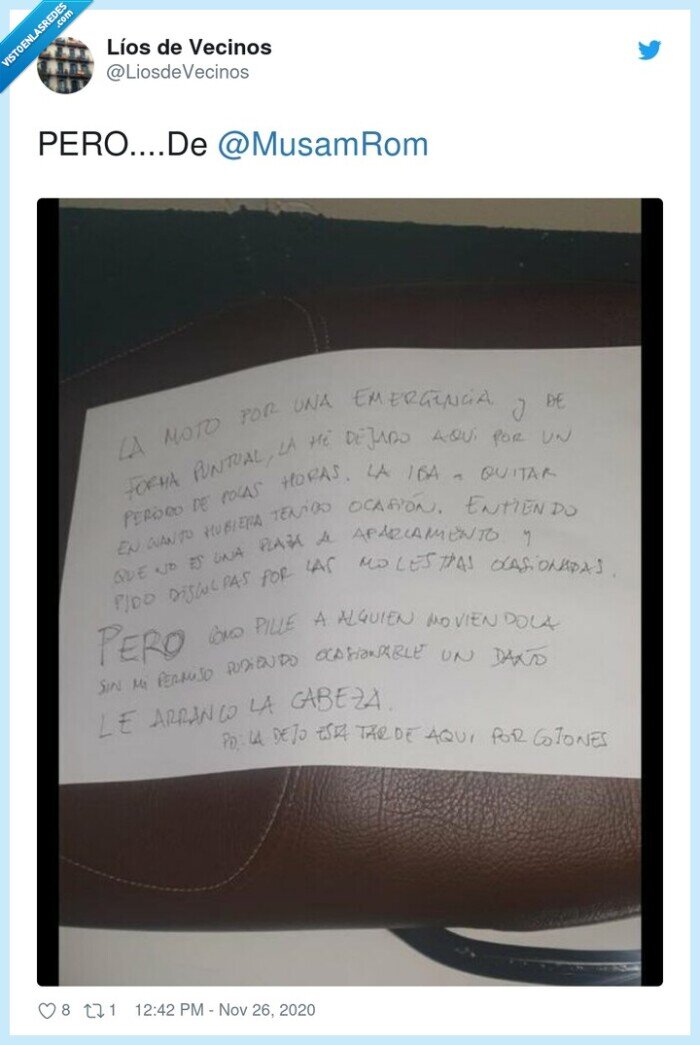 VISTOENLASREDES
.com
Líos de Vecinos
@LiosdeVecinos
PERO....De @MusamRom
LA MOTO POR UNA EMERGENCIA y DE
FORMA PUNTUAL, LA HE DEJADO AQUI POR UN
PERIODO DE POCAS HORAS. LA IBA A QUITAR
EN CUANTO HUBIERA TENIDO OCASIÓN. ENTIENDO
QUE NO ES UNA PLAZA de APARCAMIENTO y
PIDO DISCULPAS POR LAS MOLESTIAS OCASIONADAS.
PERO COMO PILLE A ALGUIEN MOVIENDOLA
SIN MI PERMISO PUDIENDO OCASIONARLE UN DAÑO
LE ARRANCO LA CABEZA.
PD: LA DEJO ESTA TARDE AQUI POR COJONES
8 1 12:42 PM - Nov 26, 2020